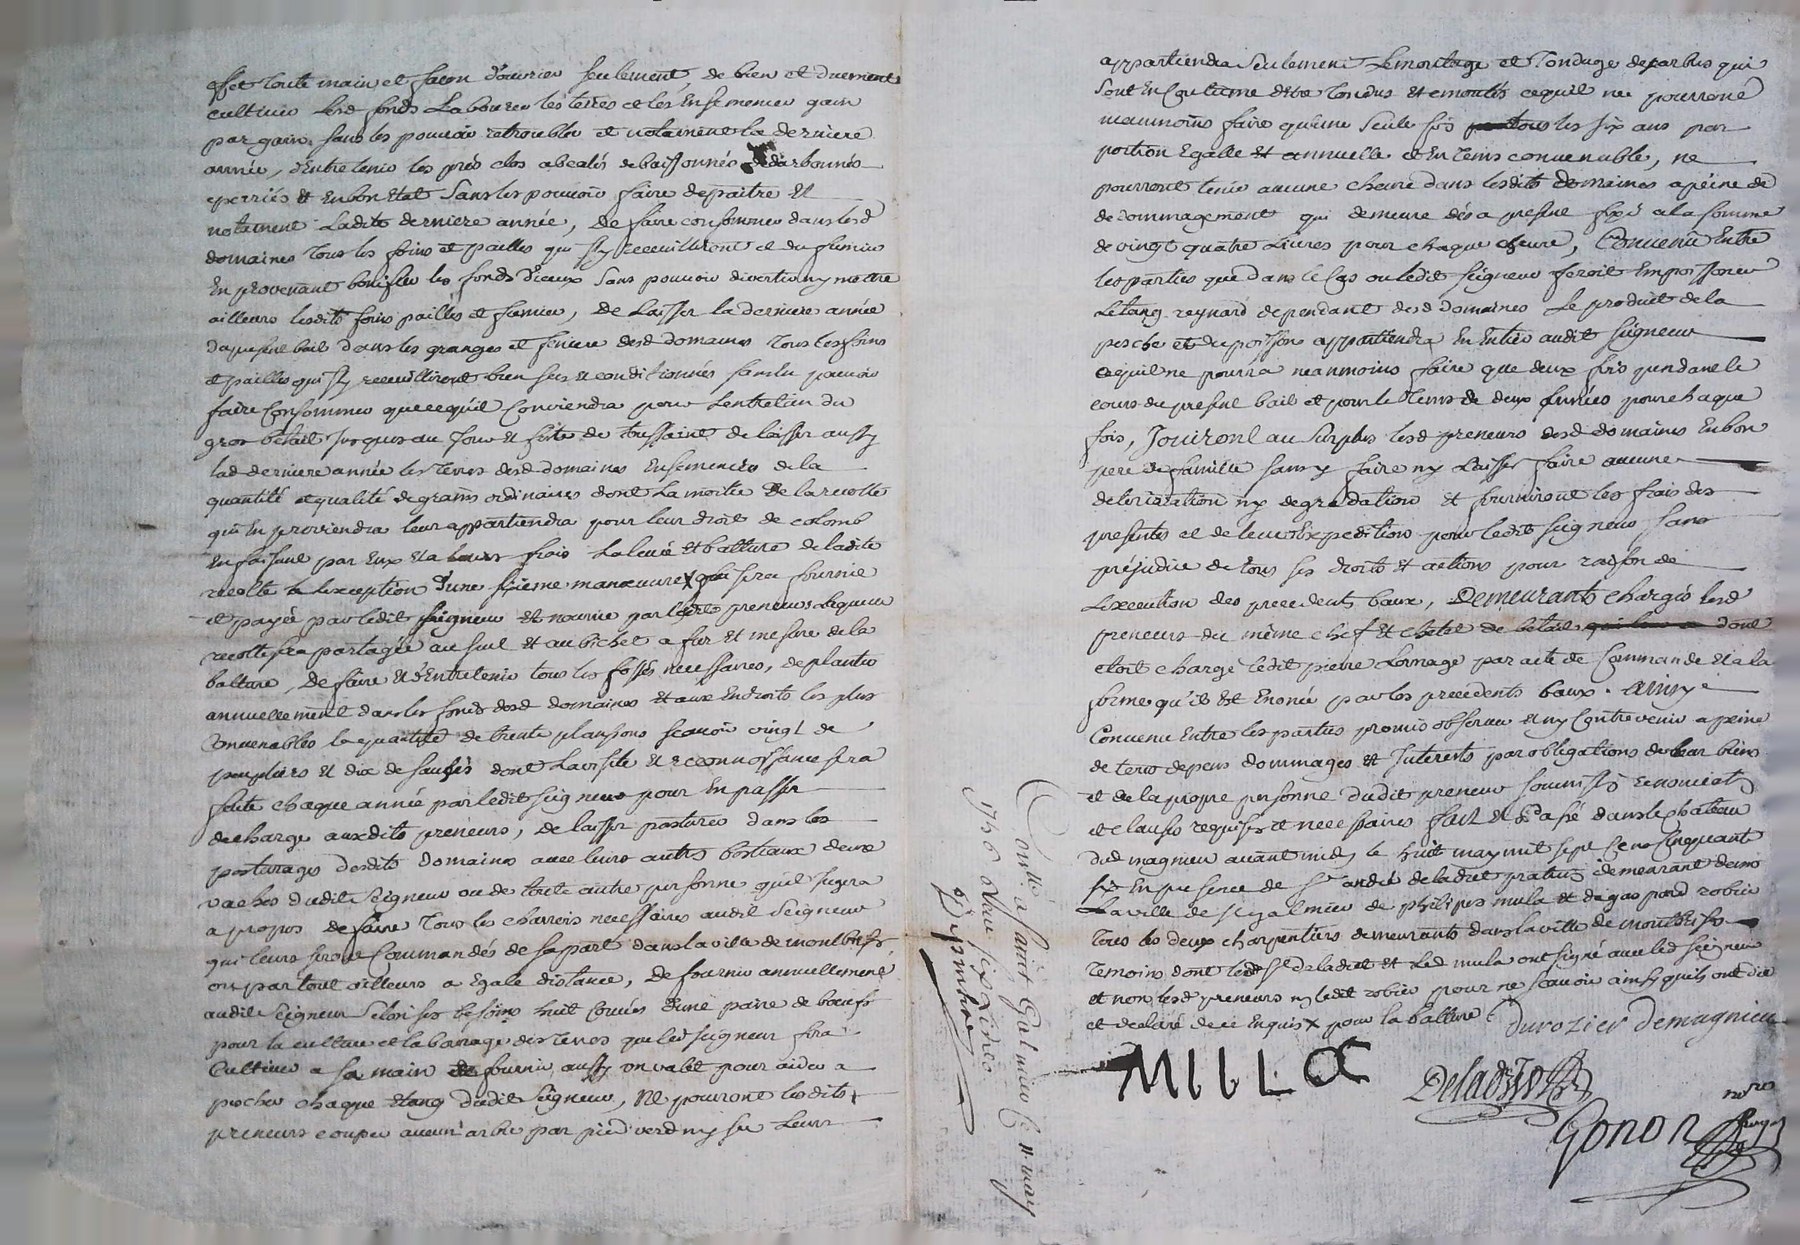 effet toute main et façon d'ouvrier seulement de bien et duement
cultiver lesd fonds Labourer les terres et les Ensemencer gain
par gain, sans les pouvoir retroubler et notament la derniere
année, d'Entretenir les prés clos abealés debuissonnés dedarbonnés
eperriés et En bon Etat Sans les pouvoir faire depaitre Et
notament Ladite derniere année, De faire consommer dans lesd
domaines tous les foins et pailles qui s'y receuilliront et du fumier
En provenant bonifier les fonds d'iceux Sans pouvoir divertir ny mettre
ailleurs lesdits foins pailles et fumier, De Laisser la derniere année
du present bail dans les granges et feniere desd domaines tous les foins
et pailles qui s'y receuilliront bien secs et conditionnés sans en pouvoir
faire Consommer que ce qu'il Conviendra pour Lentretien du
gros betail jusques au jour et fête de toussaint de laisser aussy
lad derniere année les terres desd domaines Ensemencées de la
quantité et qualité de grains ordinaires dont La moitié De la recolte
qui En proviendra leur appartiendra pour leur droit de colons
En faisant par Eux et a leurs frais La levée et batture de ladite
recolte a Lexception d'une sixieme manœuvre X qui sera fournie
et payée par ledit seigneur et nourrie par lesdits preneurs Lequelle
recolte sera partagée au suel et au bichet a fur et mesure de la
batture, De faire et d'Entretenir tous les fossés necessaires, de planter
annuellement dans les fonds desd domaines et aux Endroits les plus
Convenables la quantité de trente plansons scavoir vingt de
peupliers et dix de saules dont La visite et reconnoissance sera
faite chaque année par ledit seigneur pour En passer
decharge auxdits preneurs, de laisser pasturer dans les
pasturages desdits domaines avec leurs autres bestiaux deux
vaches dudit seigneur ou de toute autre personne qu'il jugera
a propos de faire tous les charrois necessaires audit Seigneur
qui leurs seront Commandés de sa part dans la ville de montbrison
ou partout ailleurs a Egale distance, De fournir annuellement
audit Seigneur Selon ses besoins huit Corvées d'une paire de bœufs
pour la culture et labourage des terres que led seigneur fera
Cultiver a sa main de fournir aussy un valet pour aider a
pecher chaque Etang dudit Seigneur, Ne pourront lesdits
preneurs couper aucun arbre par pied verd ny sec Leur
appartiendra Seulement Lemontage et Tondage des arbres qui
Sont En Coutume detre tondus et emontés ce quil ne pourront
neanmoins faire qu'une Seule fois tous les six ans par
portion Egalle et annuelle et En tems convenable, ne
pourront tenir aucune chevre dans lesdits domaines a peine de
dedommagement qui demeure dés a present fixé a la somme
de vingt quatre Livres pour chaque chevre, Convenu Entre
les parties que dans le Cas ou ledit seigneur feroit Empoissonner
Létang reynard dependant desd domaines Le produit de la
pesche et du poisson appartiendra En Entier audit seigneur
ce quil ne pourra neanmoins faire que deux fois pendant le
cours du present bail et pour le tems de deux années pour chaque
fois, Jouiront au Surplus lesd preneurs desd domaines En bon
pere de famille sans y faire ny Laisser faire aucune
deterioration ny degradation et fourniront les frais des
presentes et de leur Expedition pour ledit seigneur sans
préjudice de tous ses droits et actions pour raison de
Lexecution des precedents baux, Demeurants chargés lesd
preneurs du même chef et chetel de betail dont
etoit chargé ledit pierre Lornage par acte de Commande et a la
forme qu'il Est Enoncé par les precedents baux. ainsy
Convenu Entre les parties promis observer et ny Contrevenir a peine
de tous depens dommages et Interests par obligations de leur biens
et de la propre personne dudit preneur soumissions renonciations
et clauses requises et necessaires fait et passé dans le chateau
dud magnieu avant midy le huit may mil sept Cens Cinquante
six En presence de sr andré deladret praticien demeurant dans
La ville de st galmier de philipes mula et de gaspard robier
tous les deux charpentiers demeurants dans la ville de montbrison
temoins dont led sr deladret et Led mula ont signé avec led seigneur
et non lesd preneurs ny ledit robier pour ne scavoir ainsy qu'ils ont dit
et declaré de ce Enquis X pour la batture
Durozier demagnieu
MULLA
Deladret
Gonon
nore royal
Conllé a Saint Galmier le 11 may
1756 Reçu six livres
Depinbre